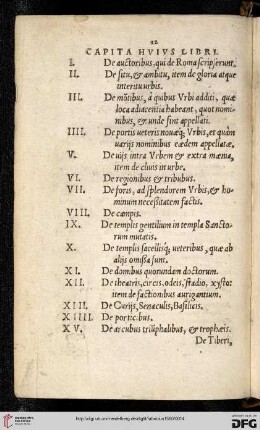 12
CAPITA HVIVS LIBRI.
I. De auctoribus, qui de Roma scripserunt.
II. De situ, & ambitu, item de gloria atque
interitu urbis.
III. De mõtibus, à quibus Vrbi additi, quæ
loca adiacentia habeant, quot nomi-
nibus, & unde sint appellati.
IIII. De portis ueteris nouæq; Vrbis, et quàm
uarijs nominibus eædem appellatæ.
V. De uijs intra Vrbem & extra mœnia,
item de cliuis in urbe.
VI. De regionibus & tribubus.
VII. De foris, ad splendorem Vrbis, & ho-
minum necessitatem factis.
VIII. De campis.
IX. De templis gentilium in templa Sancto-
rum mutatis.
X. De templis sacellisq; ueteribus, quæ ab
alijs omissa sunt.
XI. De domibus quorundam doctorum.
XII. De theatris, circis, odeis, stadio, xysto:
item de factionibus aurigantium.
XIII. De Curijs, Senaculis, Basilicis.
XIIII. De porticibus.
XV. De arcubus triũphalibus, & trophæis.
De Tiberi,
DFG